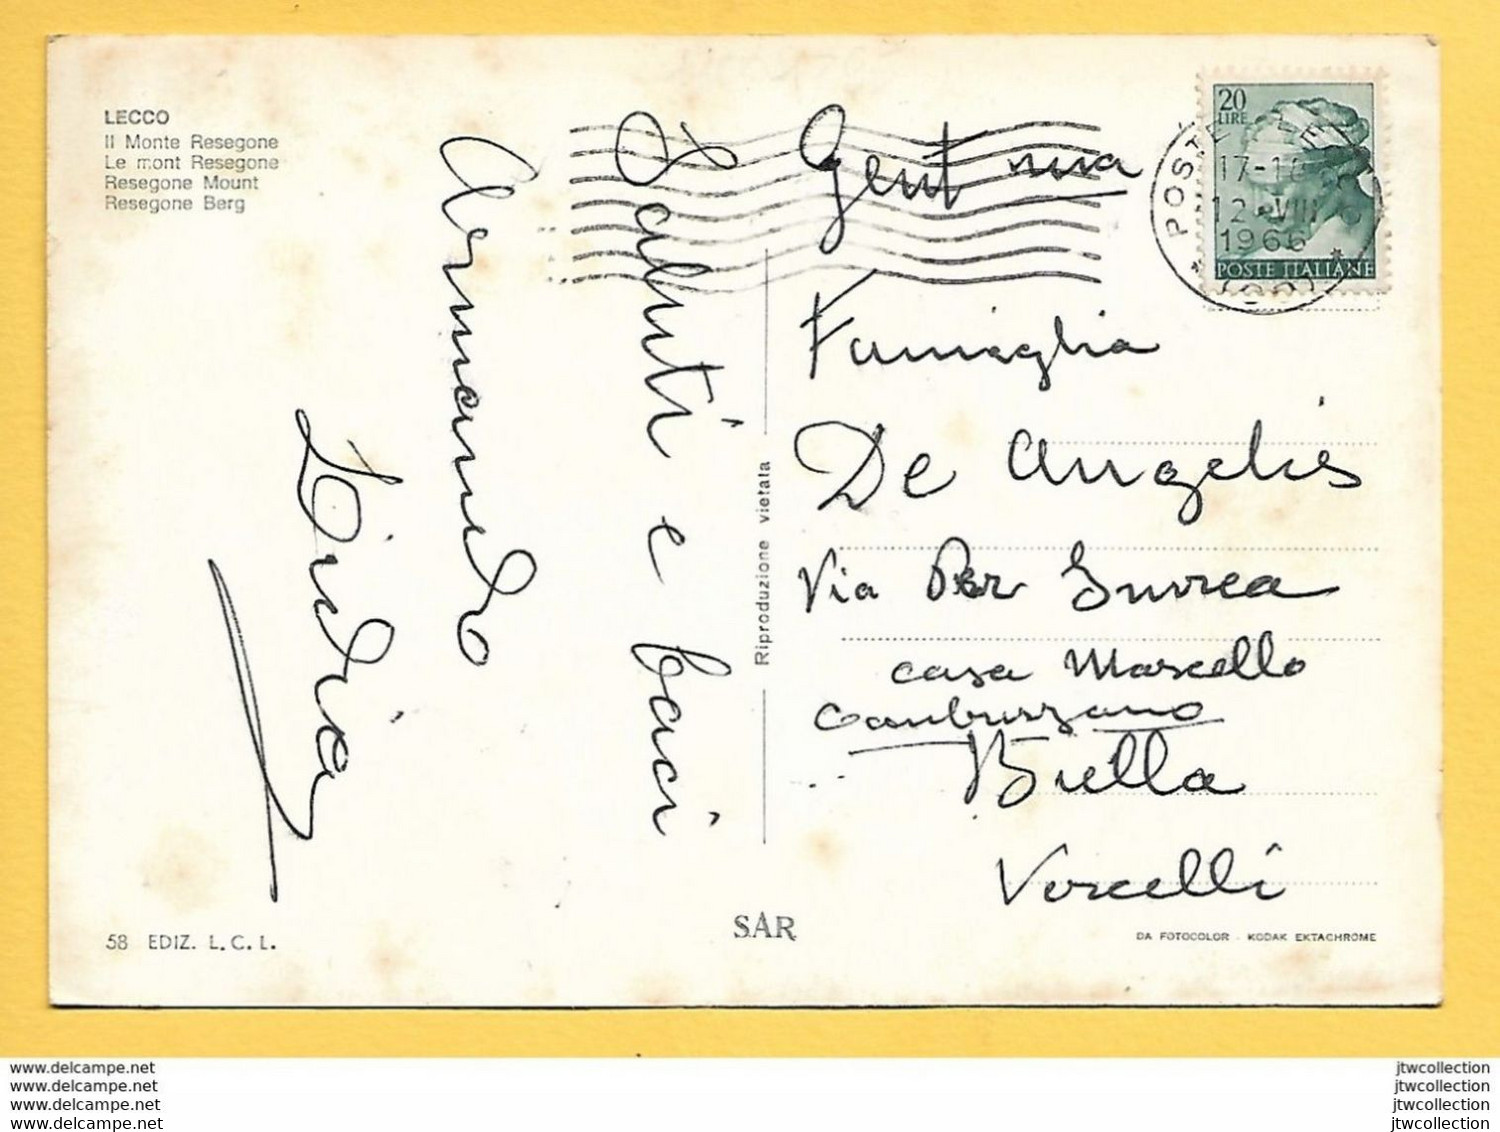 LECCO
Il Monte Resegone
Le mont Resegone
Resegone Mount
Resegone Berg
Saluti e baci
Armando
Lidia
Riproduzione vietata
20
LIRE
POSTE ITALIANE
POSTE
12 VIII
1966
Gent ma
Famiglia
De Angelis
Via Per
casa Marcello
Biella
Vercelli
58 EDIZ. L. C. L.
SAR
DA FOTOCOLOR - KODAK EKTACHROME
www.delcampe.net
www.delcampe.net
www.delcampe.net
www.delcampe.net
jtwcollection
jtwcollection
jtwcollection
jtwcollection